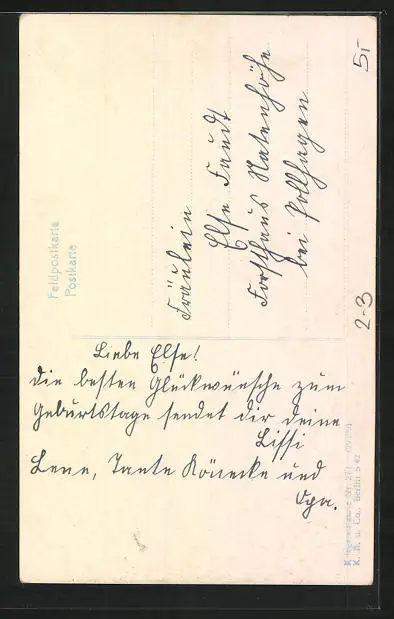 Feldpostkarte
Postkarte
Fräulein
Else Faudt
Forsthaus Natenhöhe
bei Pollhagen
Liebe Else!
Die besten Glückwünsche zum
Geburtstage sendet dir deine
Lissi
Lene, Tante Könecke und
Opa.
K. B. u. Co., Berlin S 42
5,-
2-3